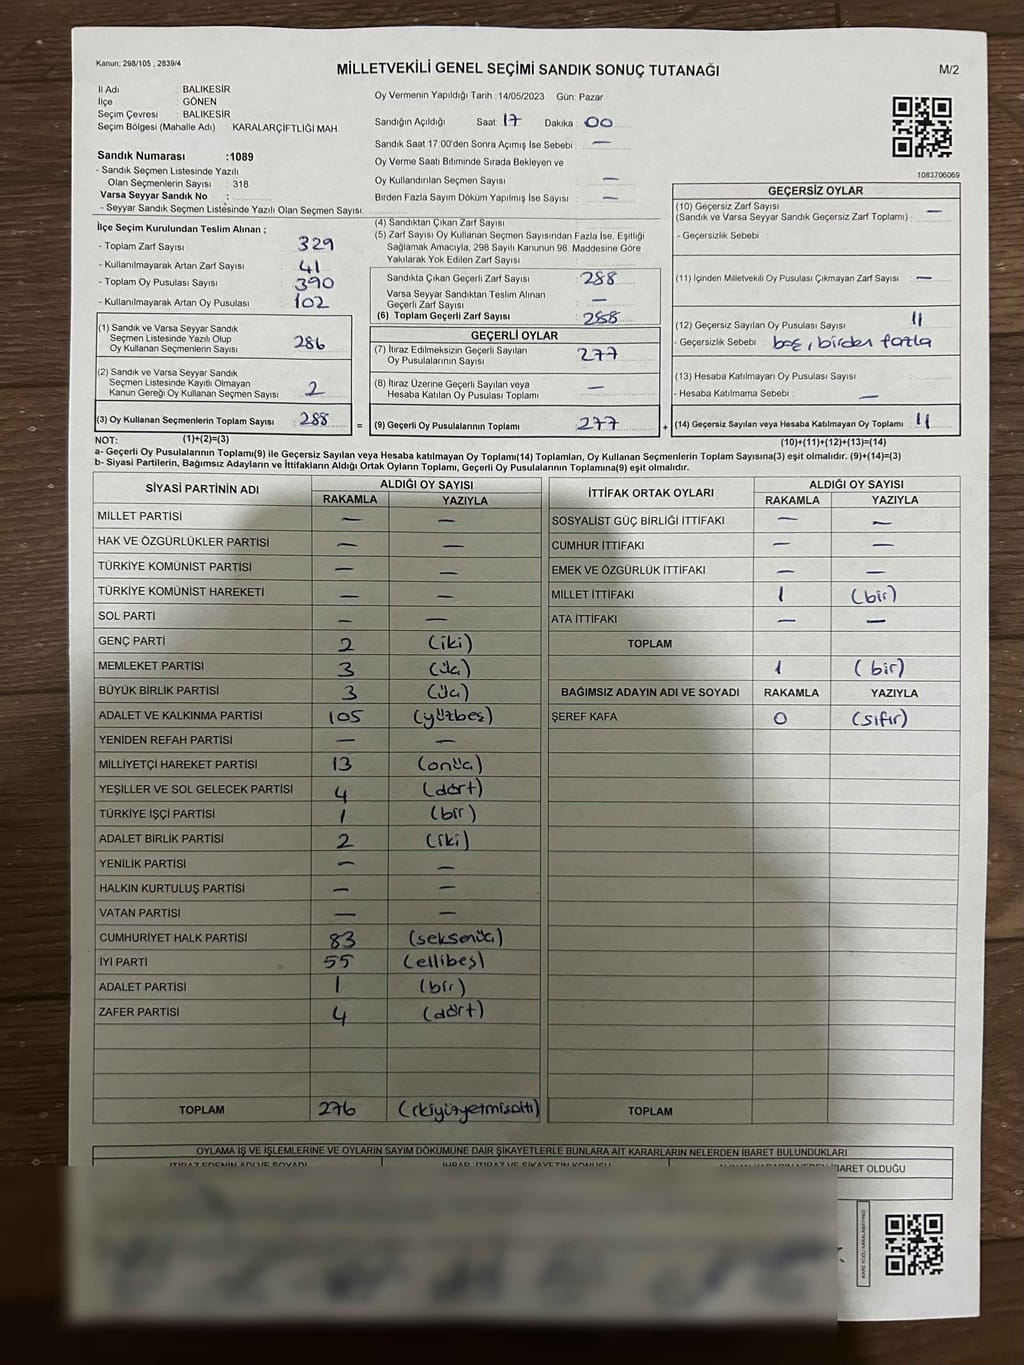 Kanun; 298/105 , 2839/4
MİLLETVEKİLİ GENEL SEÇİMİ SANDIK SONUÇ TUTANAĞI
M/2
İl Adı : BALIKESİR
İlçe : GÖNEN
Seçim Çevresi : BALIKESİR
Seçim Bölgesi (Mahalle Adı) : KARALARÇİFTLİĞİ MAH.
Oy Vermenin Yapıldığı Tarih :14/05/2023 Gün: Pazar
Sandığın Açıldığı Saat: 17 Dakika : 00
Sandık Saat 17:00'den Sonra Açımış İse Sebebi : —
Oy Verme Saati Bitiminde Sırada Bekleyen ve
Oy Kullandırılan Seçmen Sayısı : —
Birden Fazla Sayım Döküm Yapılmış İse Sayısı : —
Sandık Numarası :1089
- Sandık Seçmen Listesinde Yazılı
Olan Seçmenlerin Sayısı : 318
Varsa Seyyar Sandık No :
- Seyyar Sandık Seçmen Listesinde Yazılı Olan Seçmen Sayısı:
1083706069
İlçe Seçim Kurulundan Teslim Alınan ;
- Toplam Zarf Sayısı : 329
- Kullanılmayarak Artan Zarf Sayısı : 41
- Toplam Oy Pusulası Sayısı : 390
- Kullanılmayarak Artan Oy Pusulası : 102
(1) Sandık ve Varsa Seyyar Sandık
Seçmen Listesinde Yazılı Olup
Oy Kullanan Seçmenlerin Sayısı : 286
(2) Sandık ve Varsa Seyyar Sandık
Seçmen Listesinde Kayıtlı Olmayan
Kanun Gereği Oy Kullanan Seçmen Sayısı : 2
(3) Oy Kullanan Seçmenlerin Toplam Sayısı : 288
(4) Sandıktan Çıkan Zarf Sayısı :
(5) Zarf Sayısı Oy Kullanan Seçmen Sayısından Fazla İse, Eşitliği
Sağlamak Amacıyla, 298 Sayılı Kanunun 98. Maddesine Göre
Yakılarak Yok Edilen Zarf Sayısı :
Sandıkta Çıkan Geçerli Zarf Sayısı : 288
Varsa Seyyar Sandıktan Teslim Alınan
Geçerli Zarf Sayısı : —
(6) Toplam Geçerli Zarf Sayısı : 288
GEÇERLİ OYLAR
(7) İtiraz Edilmeksizin Geçerli Sayılan
Oy Pusulalarının Sayısı : 277
(8) İtiraz Üzerine Geçerli Sayılan veya
Hesaba Katılan Oy Pusulası Toplamı : —
= (9) Geçerli Oy Pusulalarının Toplamı : 277 +
GEÇERSİZ OYLAR
(10) Geçersiz Zarf Sayısı
(Sandık ve Varsa Seyyar Sandık Geçersiz Zarf Toplamı) : —
- Geçersizlik Sebebi :
(11) İçinden Milletvekili Oy Pusulası Çıkmayan Zarf Sayısı : —
(12) Geçersiz Sayılan Oy Pusulası Sayısı : 11
- Geçersizlik Sebebi : boş, birden fazla
(13) Hesaba Katılmayan Oy Pusulası Sayısı :
- Hesaba Katılmama Sebebi : —
(14) Geçersiz Sayılan veya Hesaba Katılmayan Oy Toplamı : 11
NOT: (1)+(2)=(3)
(10)+(11)+(12)+(13)=(14)
a- Geçerli Oy Pusulalarının Toplamı(9) ile Geçersiz Sayılan veya Hesaba katılmayan Oy Toplamı(14) Toplamları, Oy Kullanan Seçmenlerin Toplam Sayısına(3) eşit olmalıdır. (9)+(14)=(3)
b- Siyasi Partilerin, Bağımsız Adayların ve İttifakların Aldığı Ortak Oyların Toplamı, Geçerli Oy Pusulalarının Toplamına(9) eşit olmalıdır.
SİYASİ PARTİNİN ADI ALDIĞI OY SAYISI
RAKAMLA YAZIYLA
MİLLET PARTİSİ — —
HAK VE ÖZGÜRLÜKLER PARTİSİ — —
TÜRKİYE KOMÜNİST PARTİSİ — —
TÜRKİYE KOMÜNİST HAREKETİ — —
SOL PARTİ — —
GENÇ PARTİ 2 (iki)
MEMLEKET PARTİSİ 3 (üç)
BÜYÜK BİRLİK PARTİSİ 3 (üç)
ADALET VE KALKINMA PARTİSİ 105 (yüzbeş)
YENİDEN REFAH PARTİSİ — —
MİLLİYETÇİ HAREKET PARTİSİ 13 (onüç)
YEŞİLLER VE SOL GELECEK PARTİSİ 4 (dört)
TÜRKİYE İŞÇİ PARTİSİ 1 (bir)
ADALET BİRLİK PARTİSİ 2 (iki)
YENİLİK PARTİSİ — —
HALKIN KURTULUŞ PARTİSİ — —
VATAN PARTİSİ — —
CUMHURİYET HALK PARTİSİ 83 (seksenüç)
İYİ PARTİ 55 (ellibeş)
ADALET PARTİSİ 1 (bir)
ZAFER PARTİSİ 4 (dört)
TOPLAM 276 (ikiyüzyetmişaltı)
İTTİFAK ORTAK OYLARI ALDIĞI OY SAYISI
RAKAMLA YAZIYLA
SOSYALİST GÜÇ BİRLİĞİ İTTİFAKI — —
CUMHUR İTTİFAKI — —
EMEK VE ÖZGÜRLÜK İTTİFAKI — —
MİLLET İTTİFAKI 1 (bir)
ATA İTTİFAKI — —
TOPLAM
1 (bir)
BAĞIMSIZ ADAYIN ADI VE SOYADI RAKAMLA YAZIYLA
ŞEREF KAFA 0 (sıfır)
TOPLAM
OYLAMA İŞ VE İŞLEMLERİNE VE OYLARIN SAYIM DÖKÜMÜNE DAİR ŞİKAYETLERLE BUNLARA AİT KARARLARIN NELERDEN İBARET BULUNDUKLARI
İTİRAZ EDENİN ADI VE SOYADI İHBAR, İTİRAZ VE ŞİKAYETİN KONUSU İBARET OLDUĞU
KARE KODU KARALAMAYINIZ!